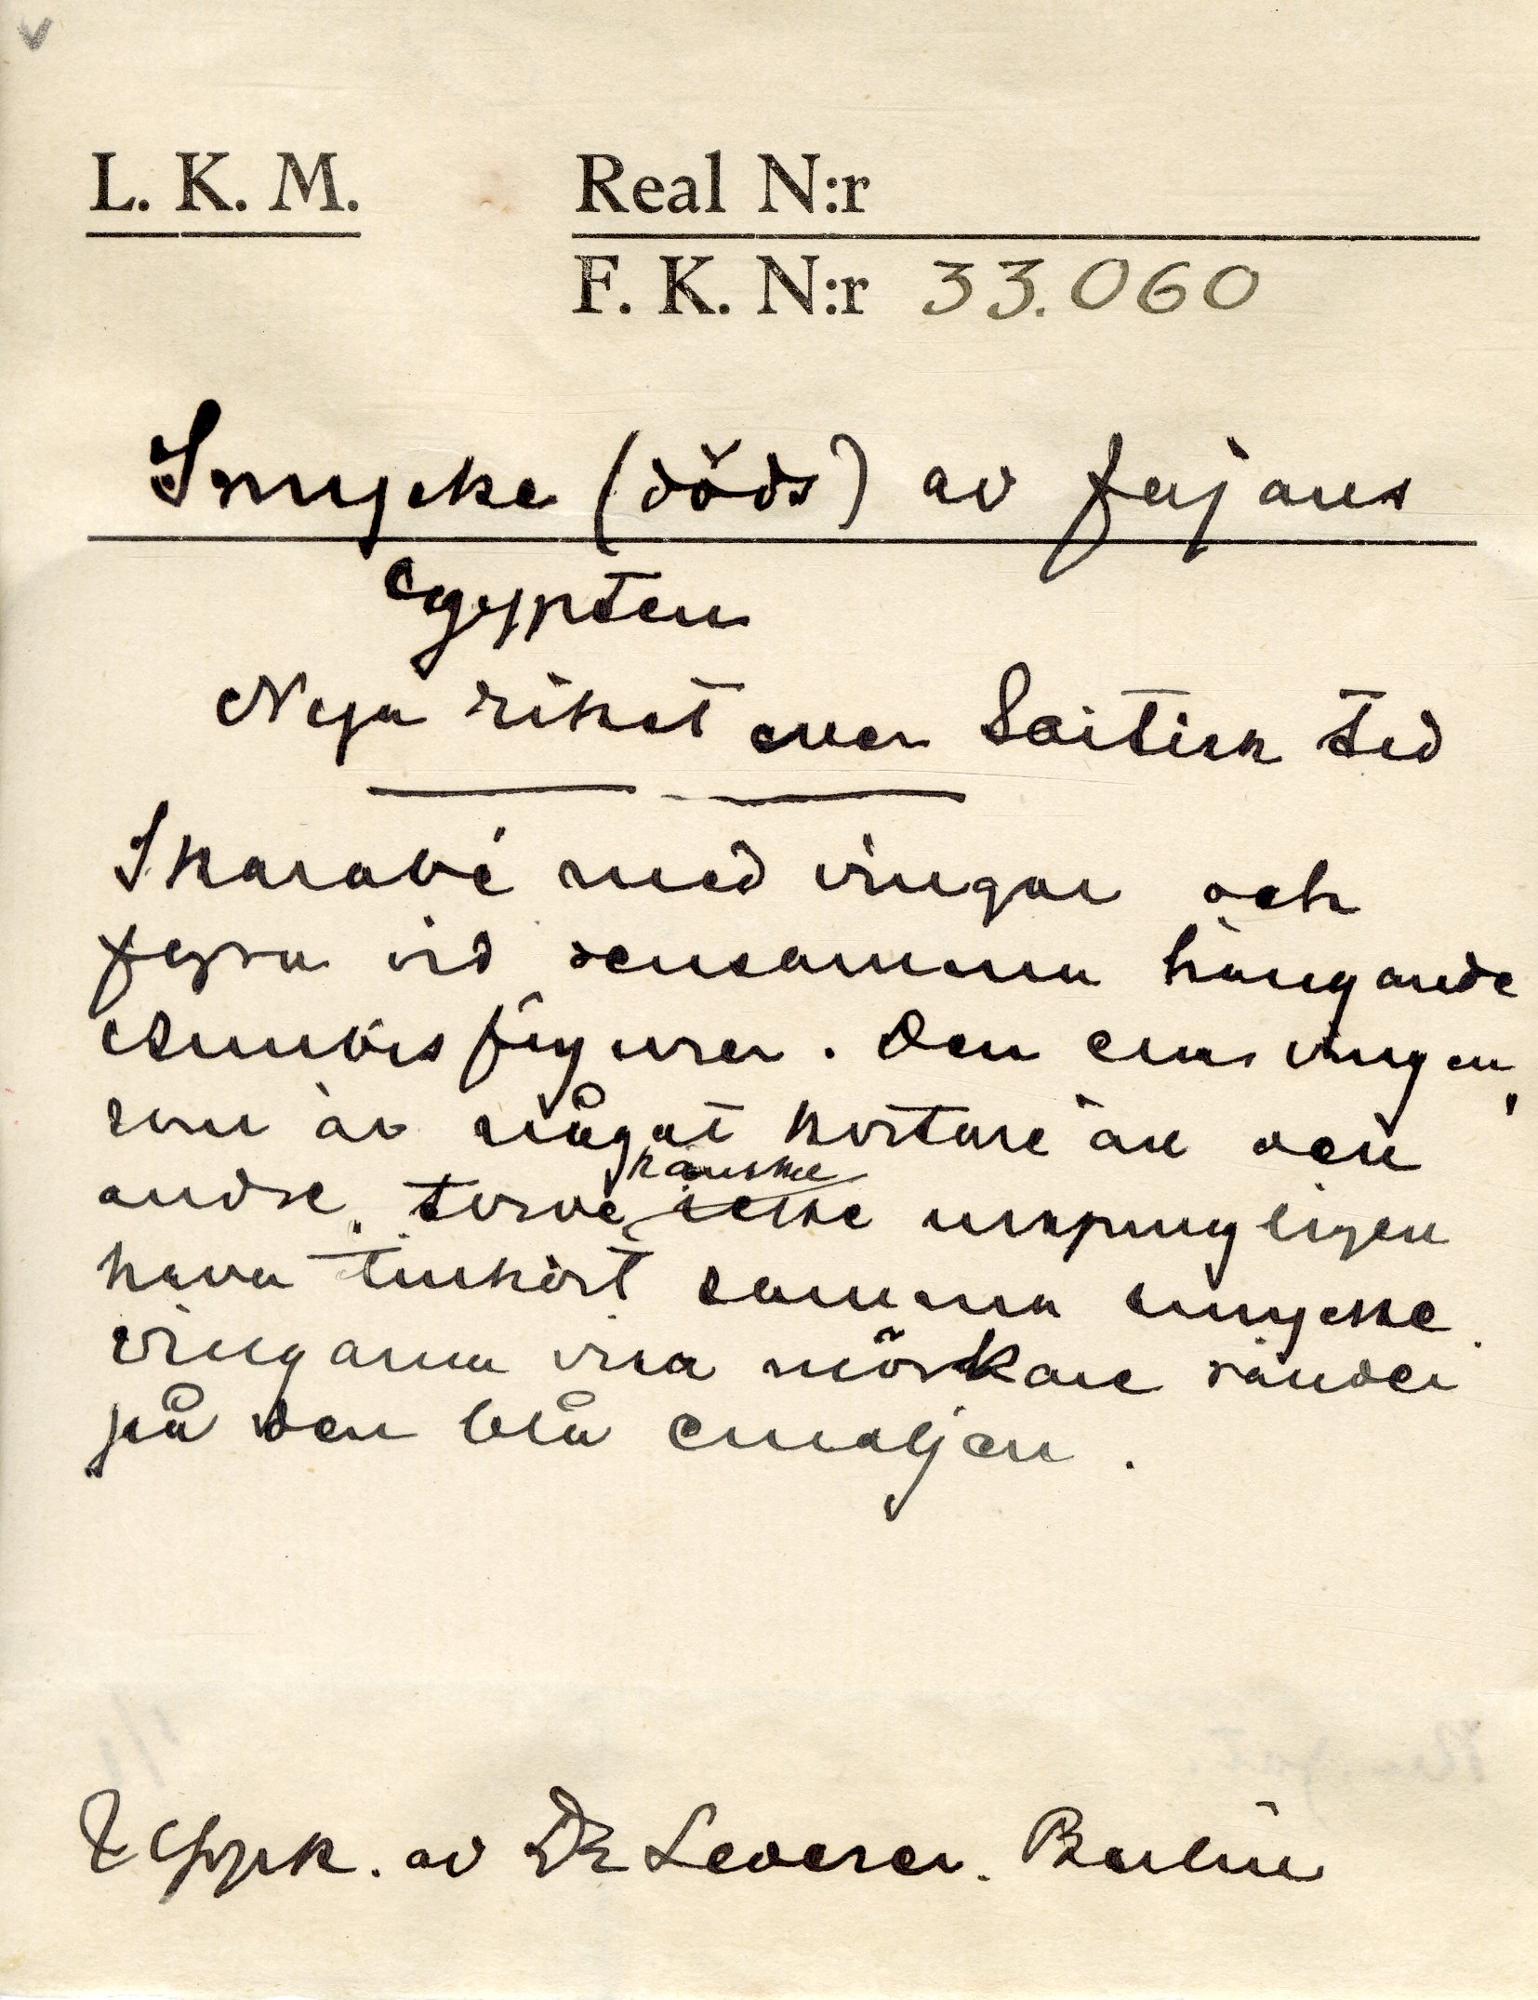 L. K. M. Real N:r
F. K. N:r 33.060
Smycke (döds) av fajans
Egypten
Nya riket eller Saitisk tid
Skarabé med vingar och
fyra vid densamma hängande
Anubisfigurer. Den ena vingen,
som är något kortare än den
kanske
andre, torde icke urspungligen
hava tillhört samma smycke.
Vingarna visa mörkare ränder
på den blå emaljen.
av Dr Lederer. Berlin